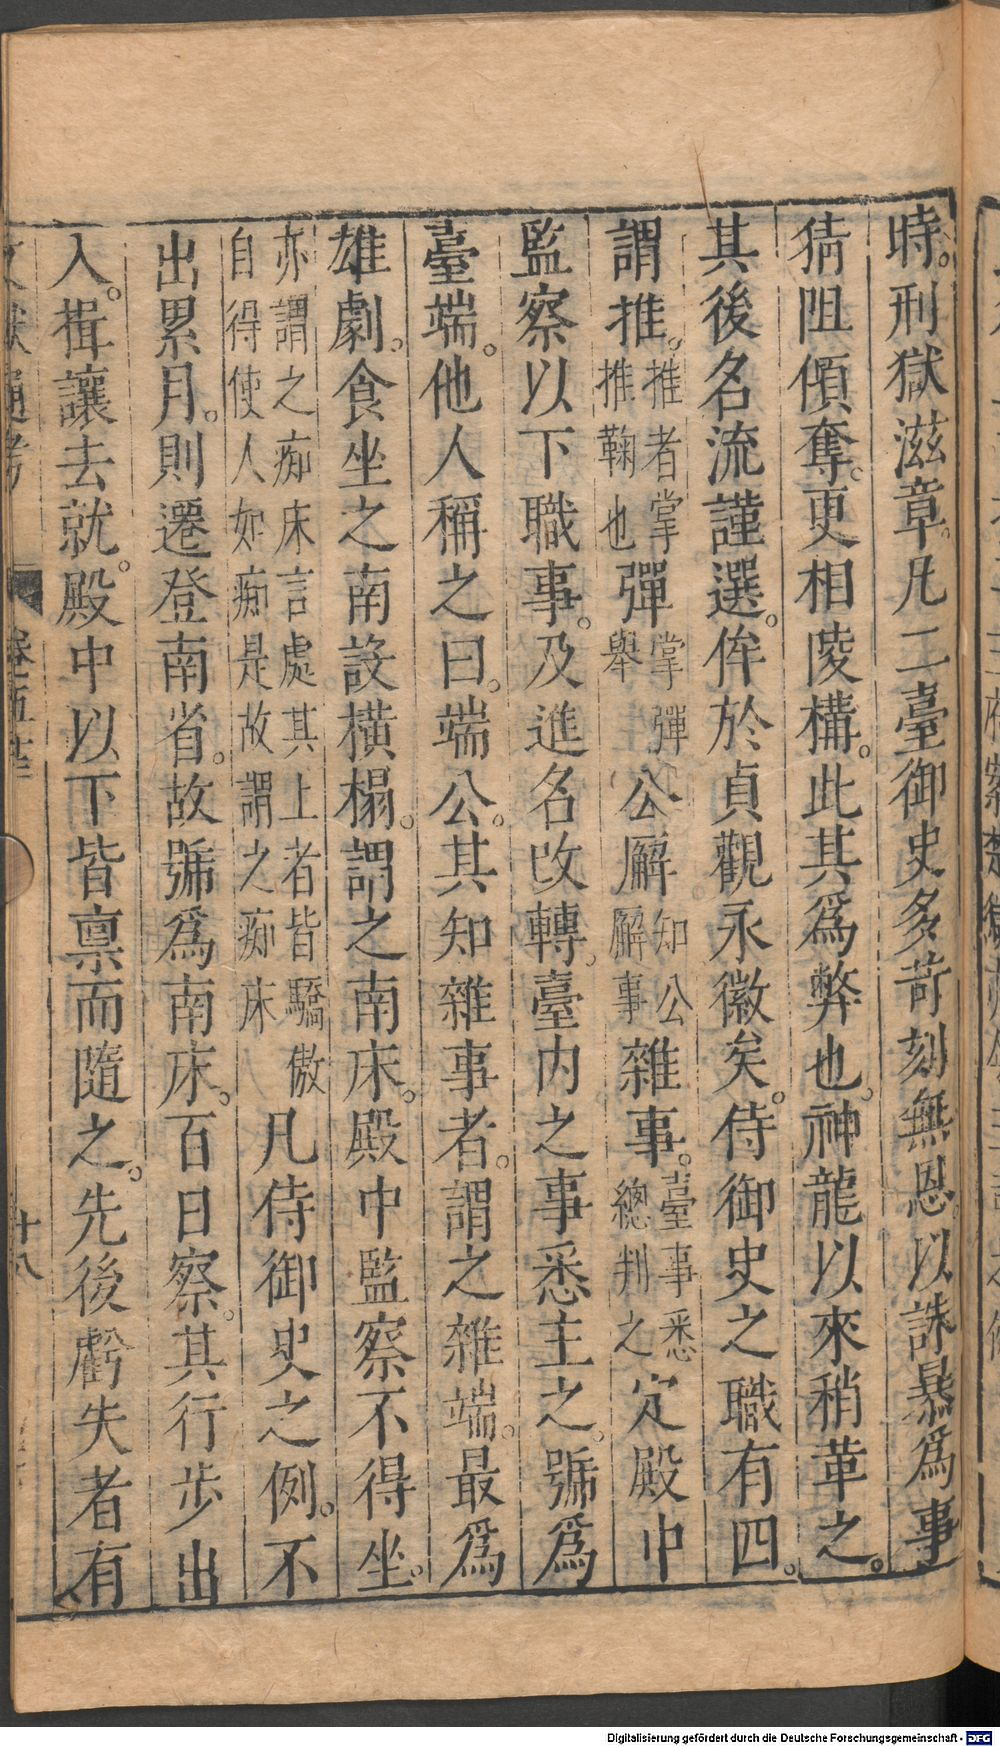 時。刑獄滋章。凡二臺御史多苛刻無恩。以誅暴爲事
猜阻傾奪。更相陵構。此其爲弊也。神龍以來稍革之。
其後名流謹選。侔於貞觀永徽矣。侍御史之職有四。
謂推。推者掌推鞫也彈掌彈舉公廨知公廨事雜事。臺事悉總判之定殿中
監察以下職事。及進名改轉。臺內之事悉主之。號爲
臺端。他人稱之曰。端公。其知雜事者。謂之雜端。最爲
雄劇。食坐之南設橫榻。謂之南床。殿中監察不得坐。
亦謂之痴床言處其上者皆驕傲自得使人如痴是故謂之痴床凡侍御史之例。不
出累月。則遷登南省。故號爲南床。百日察。其行步出
入。揖讓去就。殿中以下皆稟而隨之。先後虧失者有
文獻通考 卷五十三 十八
Digitalisierung gefördert durch die Deutsche Forschungsgemeinschaft - DFG